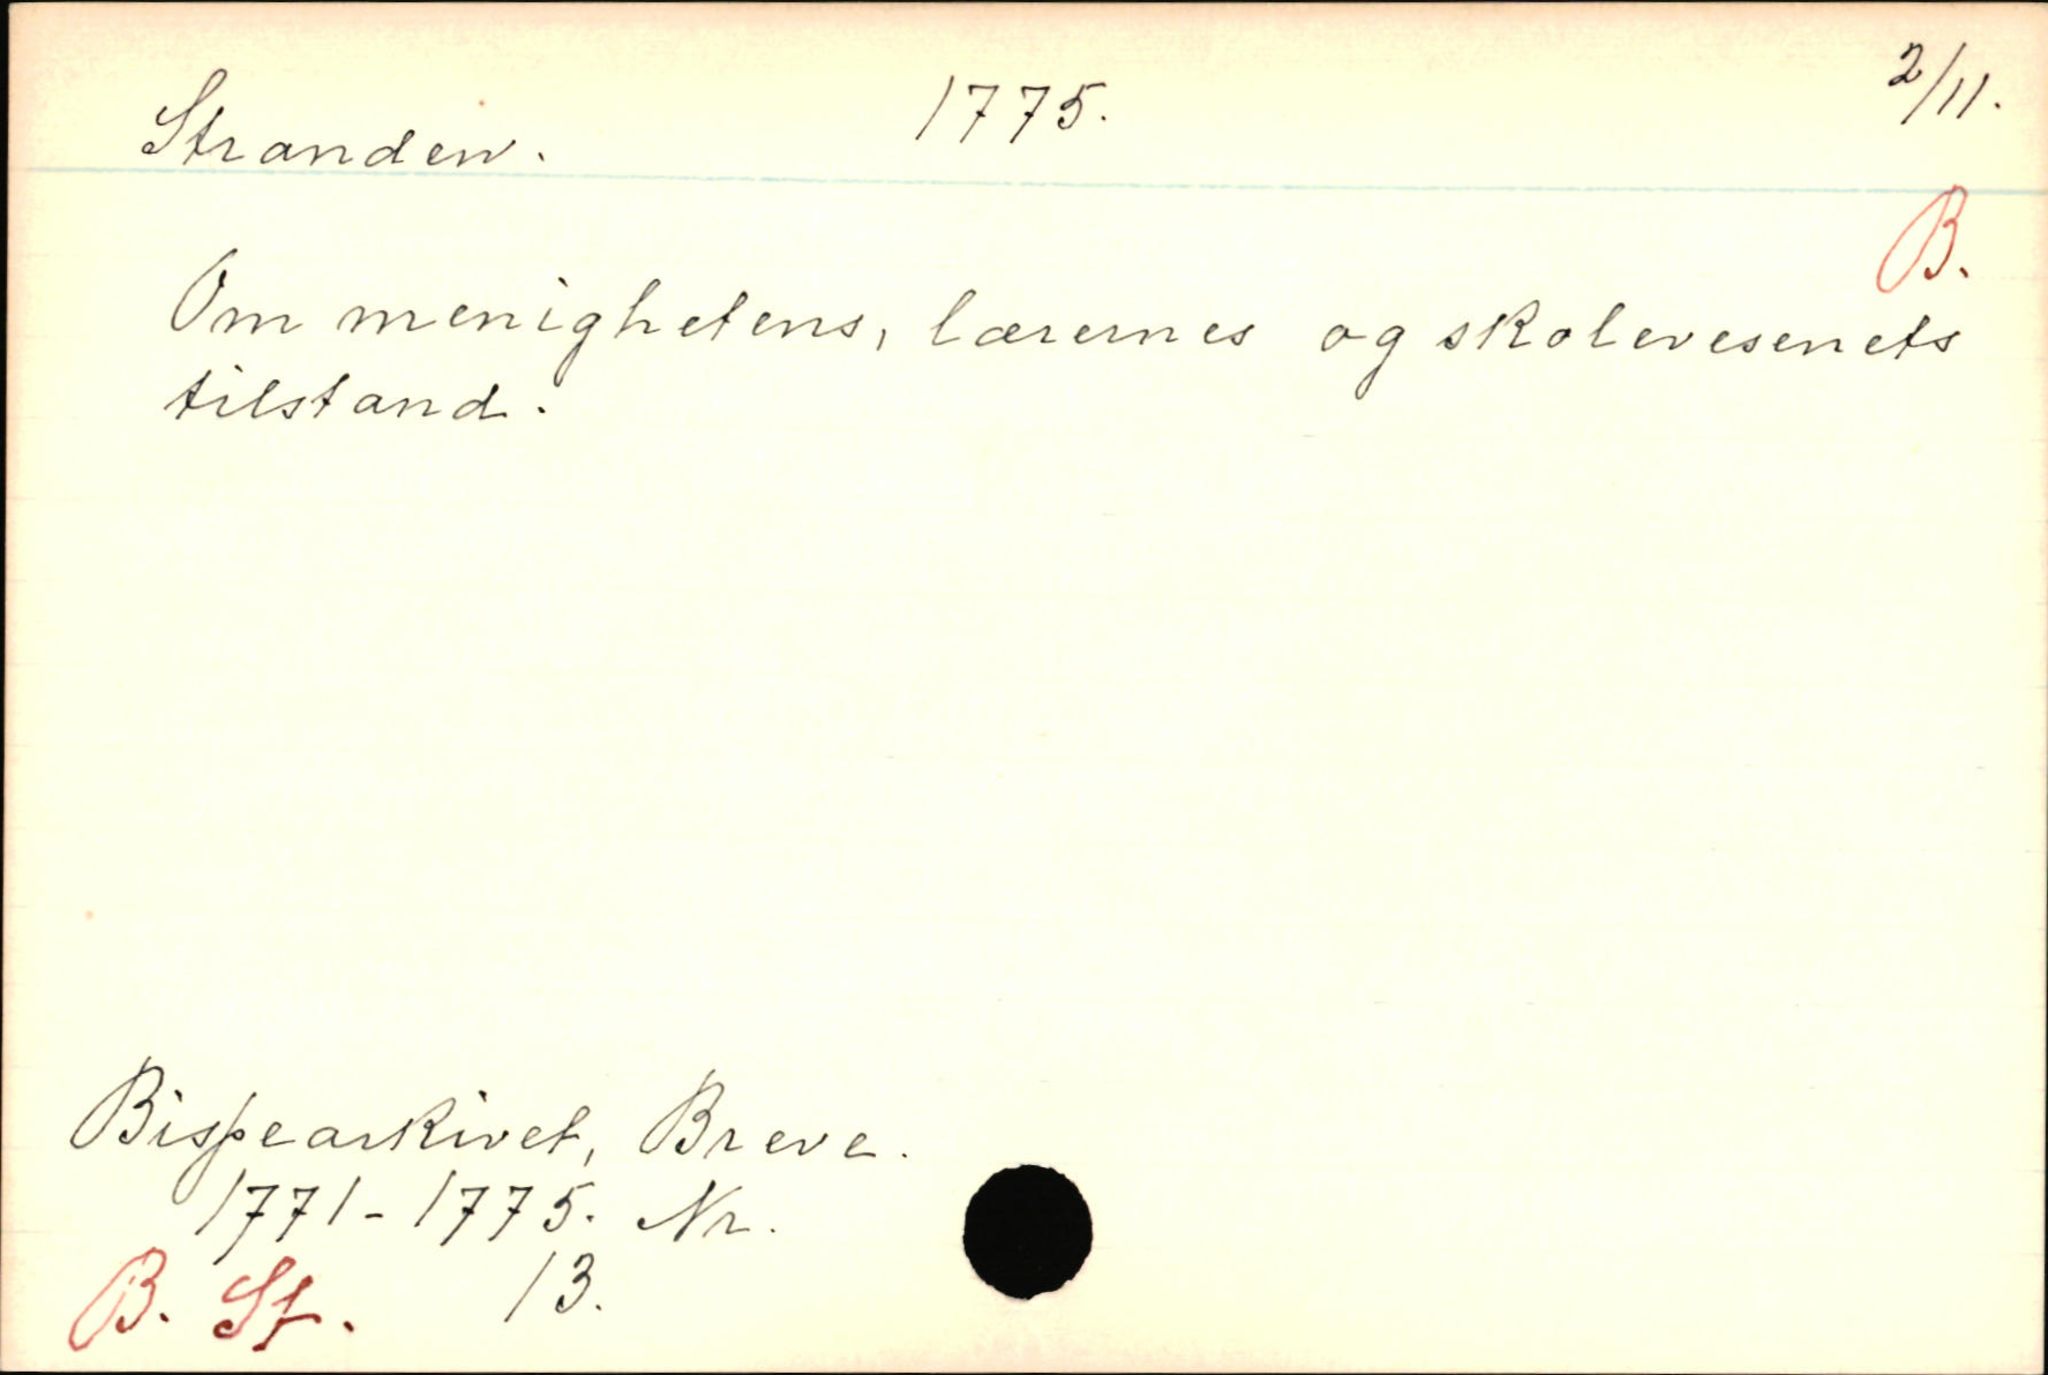 Stranden. 1775. 2/11.
B.
Om menighetens, lærernes og skolevesenets
tilstand.
Bispearkivet, Breve.
1771-1775. Nr.
B. St. 13.